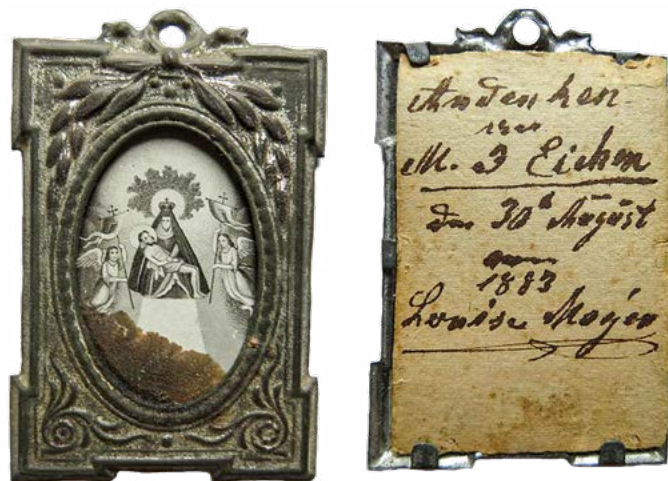 Andenken
von
M. 3 Eichen
den 30ª August
1883
Louise Mayer